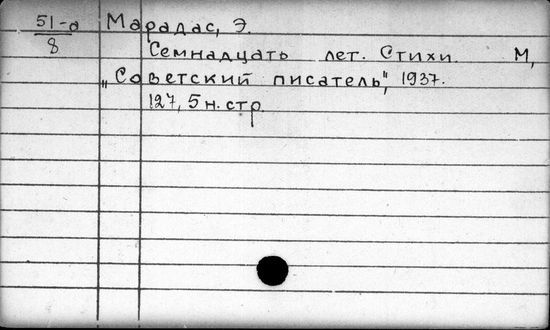 51-а Марадас, Э.
8
Семнадцать лет. Стихи. М,
"Советский писатель", 1937.
127, 5 н. стр